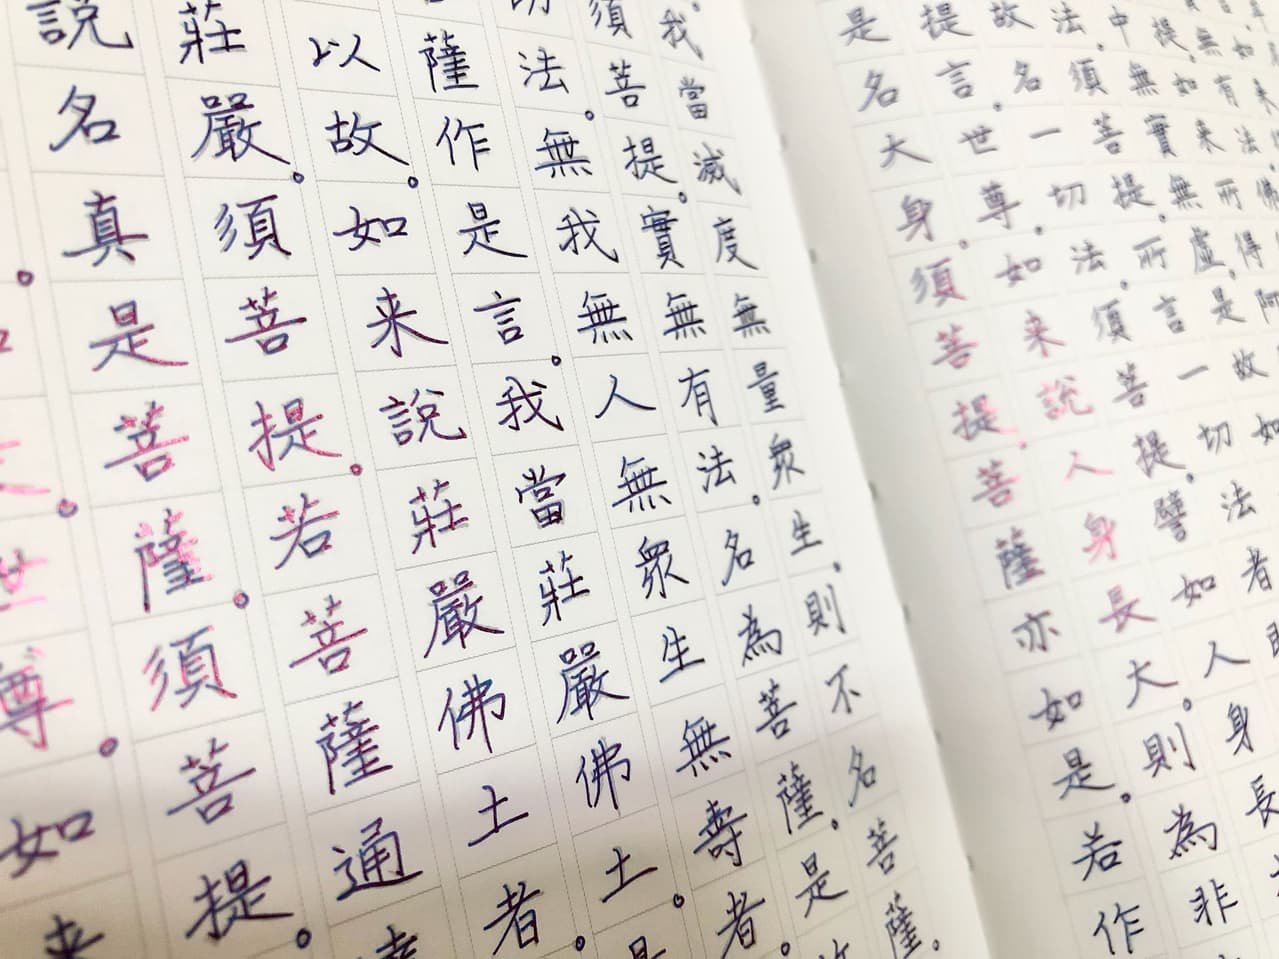 如来
無有法佛
提。如来所得阿
中無實無虛。是故如
法。須菩提。所言一切法者
故名一切法。須菩提。譬如人身長
提言。世尊。如来說人身長大。則為非
是名大身。須菩提。菩薩亦如是。若作
我當滅度無量眾生。則不名菩薩。
須菩提。實無有法。名為菩薩。是故
切法。無我無人無眾生無壽者。
薩作是言。我當莊嚴佛土。是
以故。如来說莊嚴佛土者。
莊嚴。須菩提。若菩薩通達
說名真是菩薩。須菩提。
世尊。如来